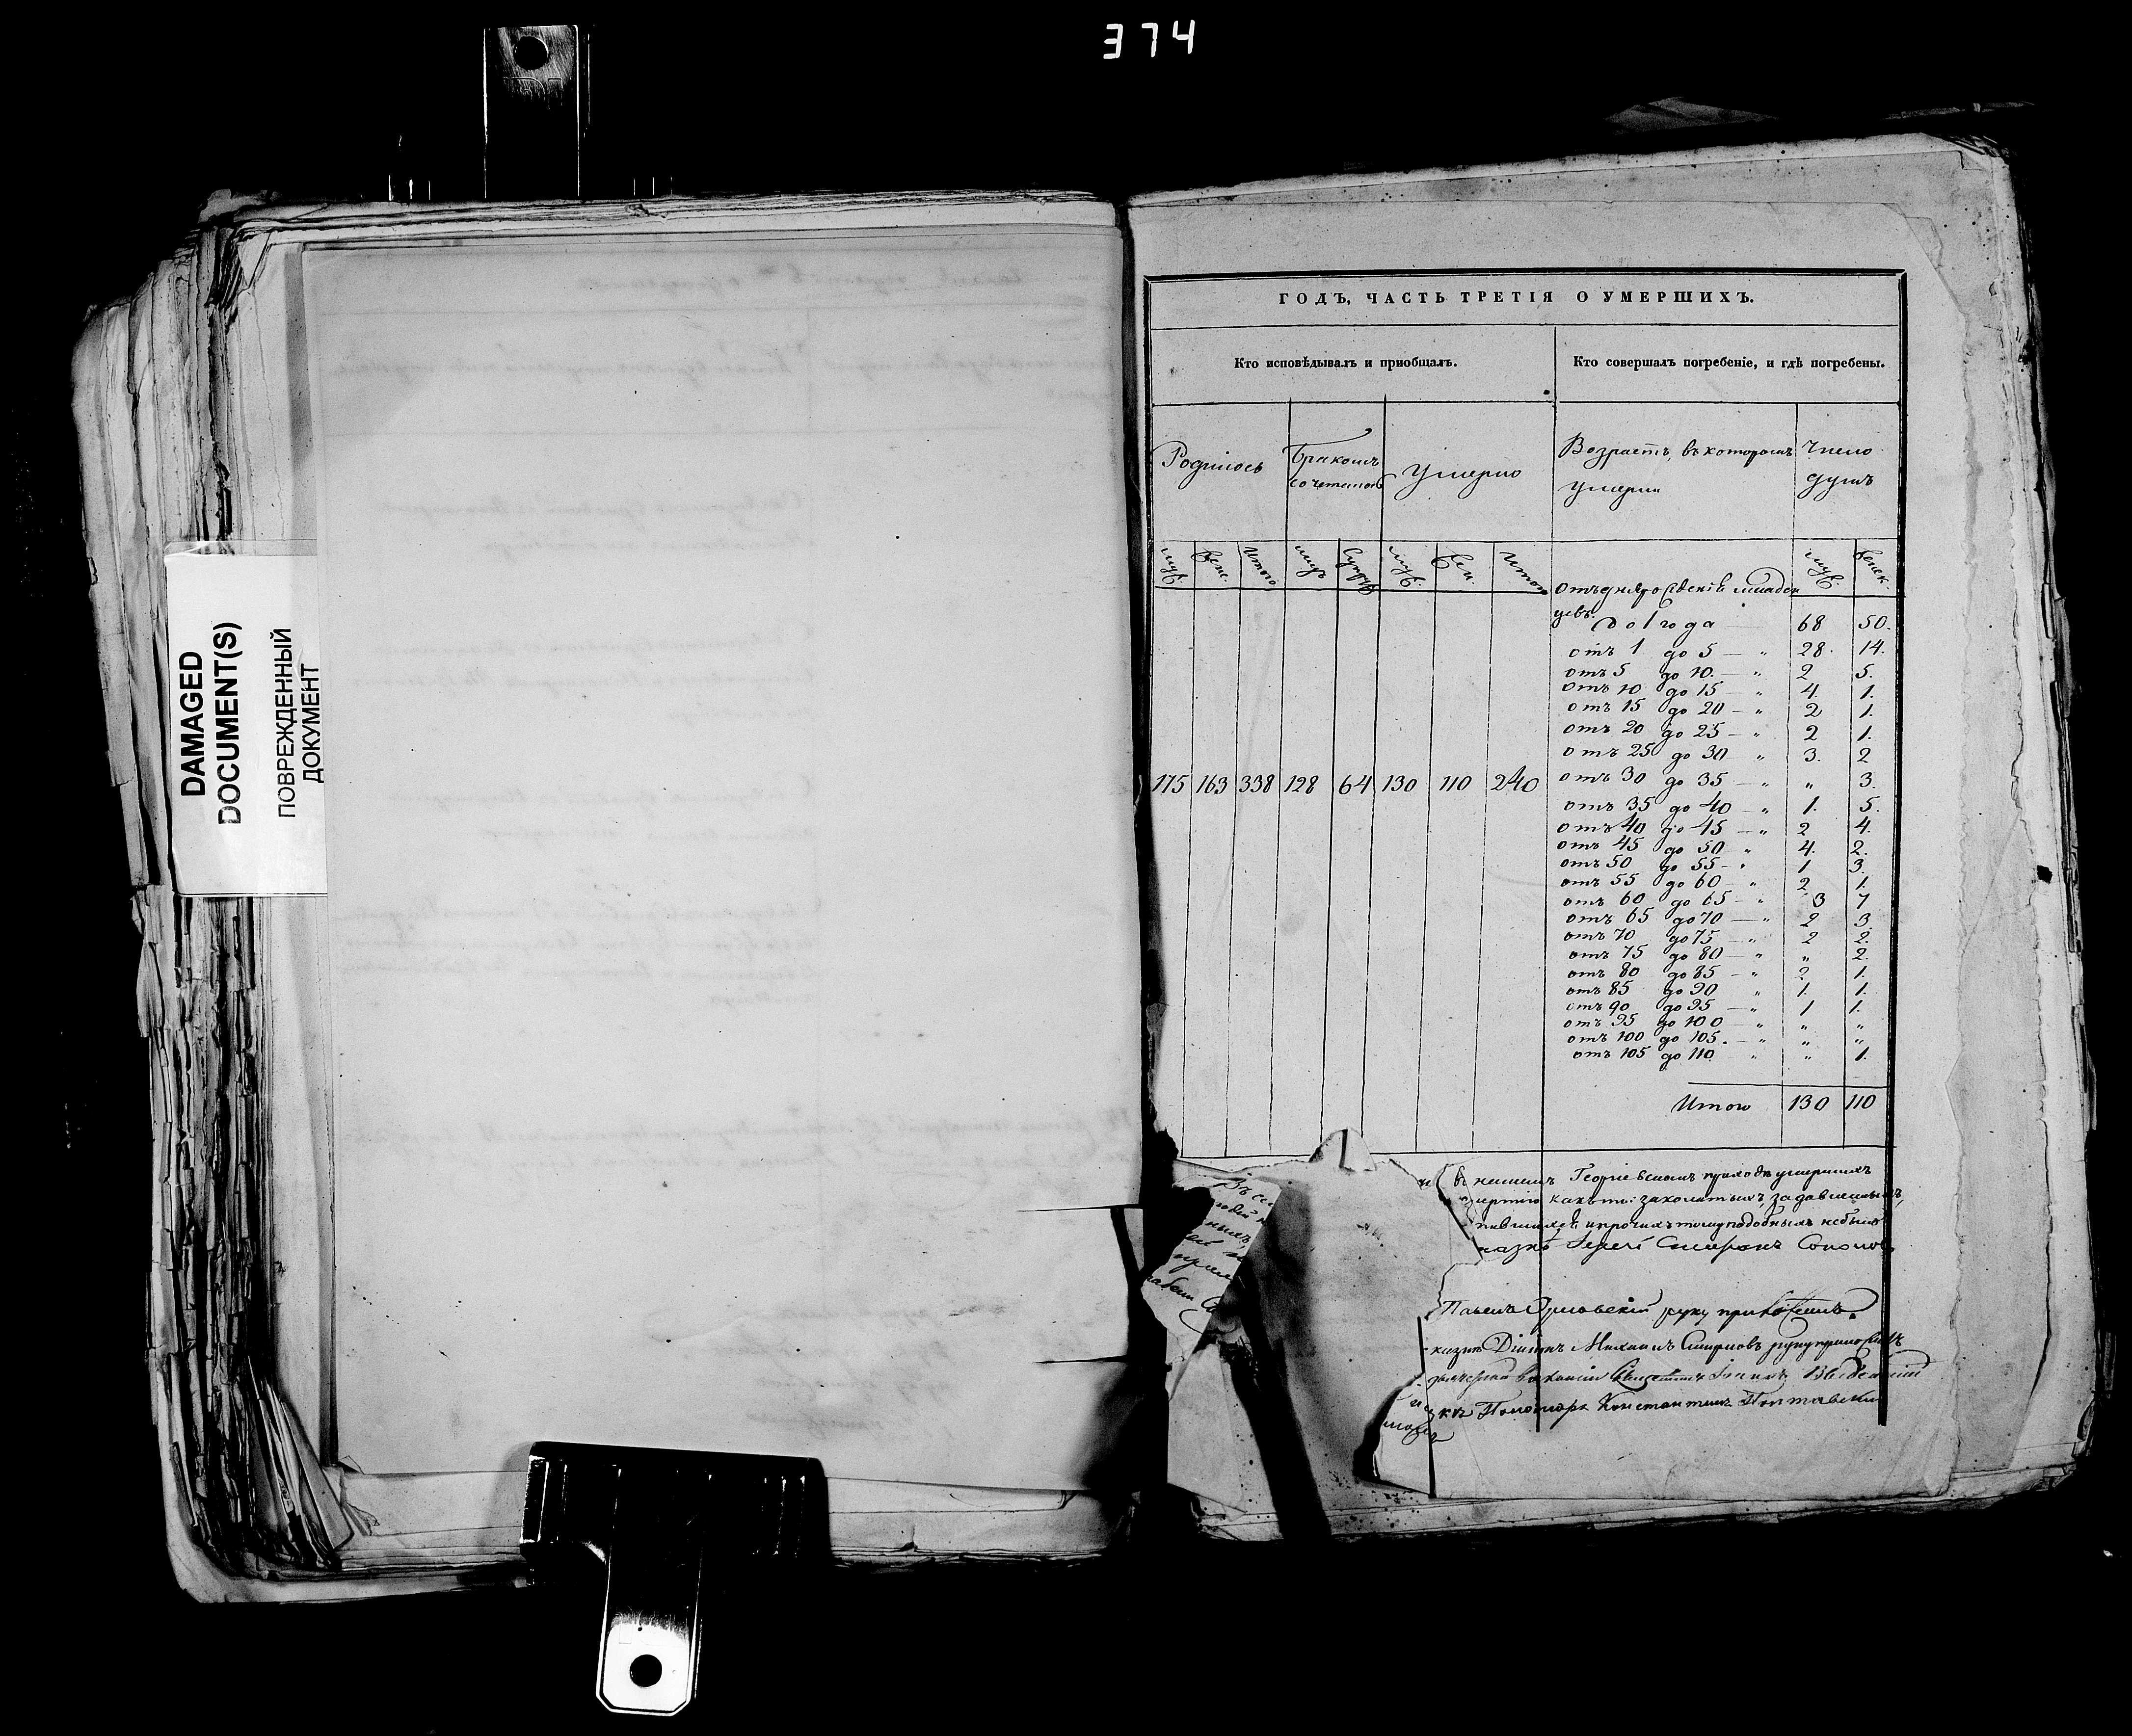 374
DAMAGED
DOCUMENT(S)
ПОВРЕЖДЕННЫЙ
ДОКУМЕНТ
ГОДЪ, ЧАСТЬ ТРЕТІЯ О УМЕРШИХЪ.
Кто исповѣдывалъ и пріобщалъ.
Кто совершалъ погребеніе, и гдѣ погребены.
Родилось
Бракомъ
сочеталось
Умерло
Возрастъ, въ которомъ
умерли
Число
душъ
муж. жен. Итого муж. Супруж. муж. Жен. Итого
муж. женск.
175 163 338 128 64 130 110 240
отъ дня рожденія младен
цевъ
до 1 года 68 50.
отъ 1 до 5 — " 28. 14.
отъ 5 до 10. — " 2 5.
отъ 10 до 15 — " 4. 1.
отъ 15 до 20 — " 2 1.
отъ 20 до 25 — " 2 1.
отъ 25 до 30 " 3. 2
отъ 30 до 35 — " " 3.
отъ 35 до 40 — " 1. 5.
отъ 40 до 45 — " 2 4.
отъ 45 до 50 " 4. 2.
отъ 50 до 55 — " 1 3.
отъ 55 до 60 " 2 1.
отъ 60 до 65 — " 3 7
отъ 65 до 70 — " 2 3.
отъ 70 до 75 — " 2 2.
отъ 75 до 80 — " " 2.
отъ 80 до 85 — " 2 1.
отъ 85 до 90 " 1. 1.
отъ 90 до 95 — " 1 1.
отъ 95 до 100 — " " "
отъ 100 до 105. — " " "
отъ 105 до 110 " " 1.
Итого 130 110
въ нашемъ Георгіевскомъ приходѣ умершихъ
какъ то: заколотыхъ, задавленныхъ,
и прочихъ тому подобныхъ небыло
Іерей Симеонъ Соколовъ
Павелъ Орловскій руку приложилъ.
Діаконъ Михаилъ Смирновъ руку приложилъ
Введенскій
Пономарь Константинъ Полтавскій